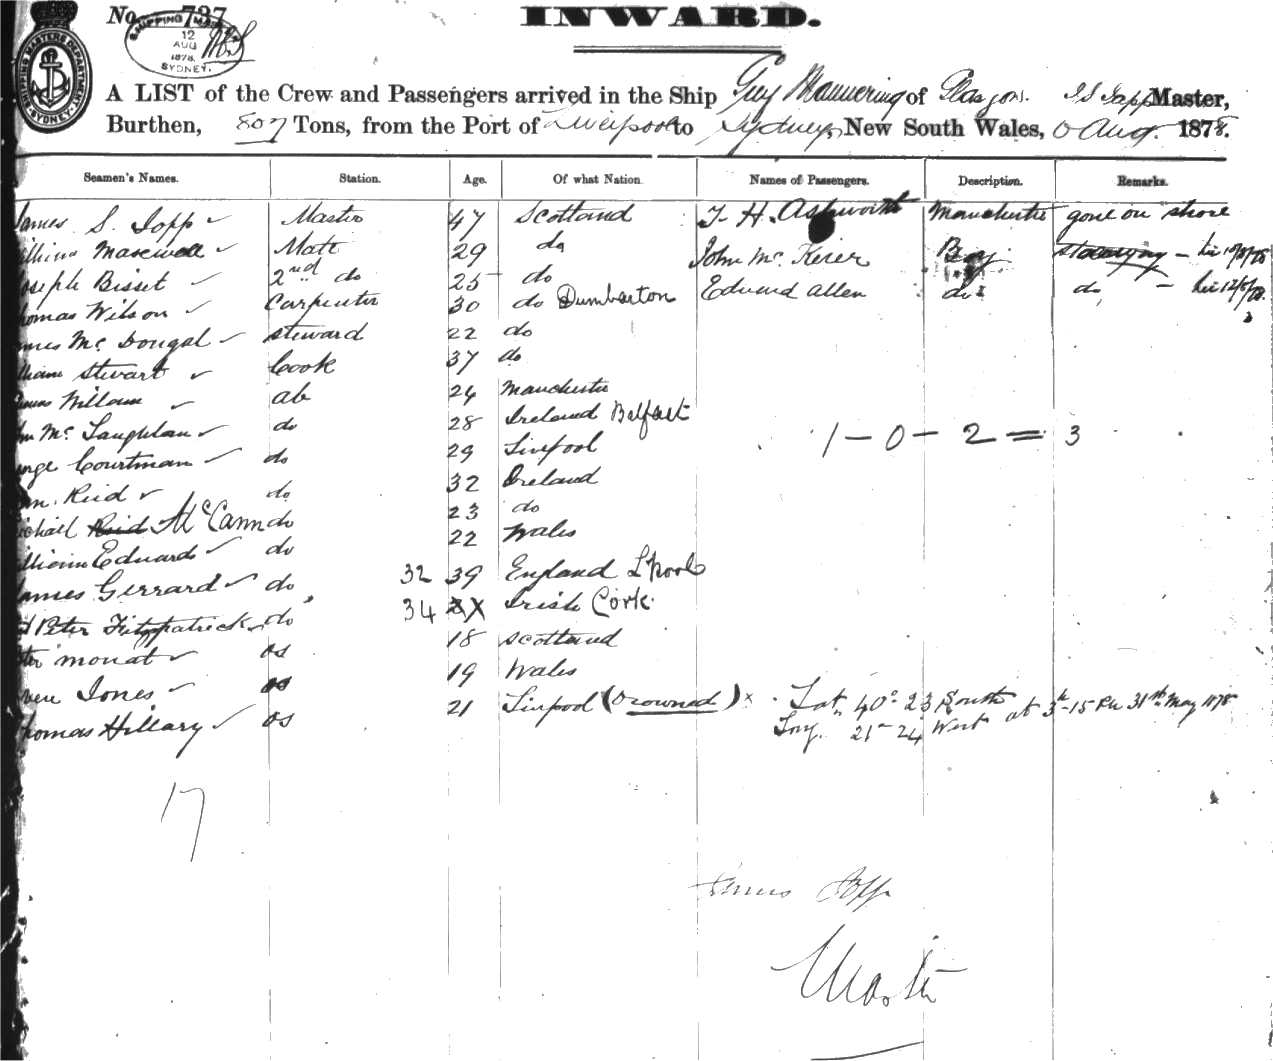 No. 737 INWARD.
SHIPPING MASTERS DEPARTMENT SYDNEY
12 AUG 1878 SYDNEY.
A LIST of the Crew and Passengers arrived in the Ship Guy Mannering of Glasgow. Master,
Burthen, 807 Tons, from the Port of Liverpool to Sydney, New South Wales, Aug. 1878.
Seamen's Names. Station. Age. Of what Nation. Names of Passengers. Description. Remarks.
James S. Topp Master 47 Scotland T. H. Ashworth Manchester gone on shore
Maxwell Mate 29 do John Mc Boy Stowaway
Joseph Bisset 2nd do 25 do Edward Allen do do
homas Wilson Carpenter 30 do Dumbarton
mes Mc Dougal steward 22 do
lliam Stewart Cook 37 do
ab 24 Manchester
Mc Laughlan do 28 Ireland Belfast
orge Courtman do 29 Liverpool
Reid do 32 Ireland
ichall Reid McCann do 23 do
illiam Edwards do 22 Wales
ames Gerrard do 32 39 England Lpool
Peter Fitzpatrick do 34 Irish Cork.
ter monat os 18 Scotland
Jones os 19 Wales
homas Hillary os 21 Liverpool (Drowned) x Lat. 40° 23 South
Long. 21 - 24 West at 3h-15 PM 31st May 1878
1 - 0 - 2 = 3
17
James Topp
Master